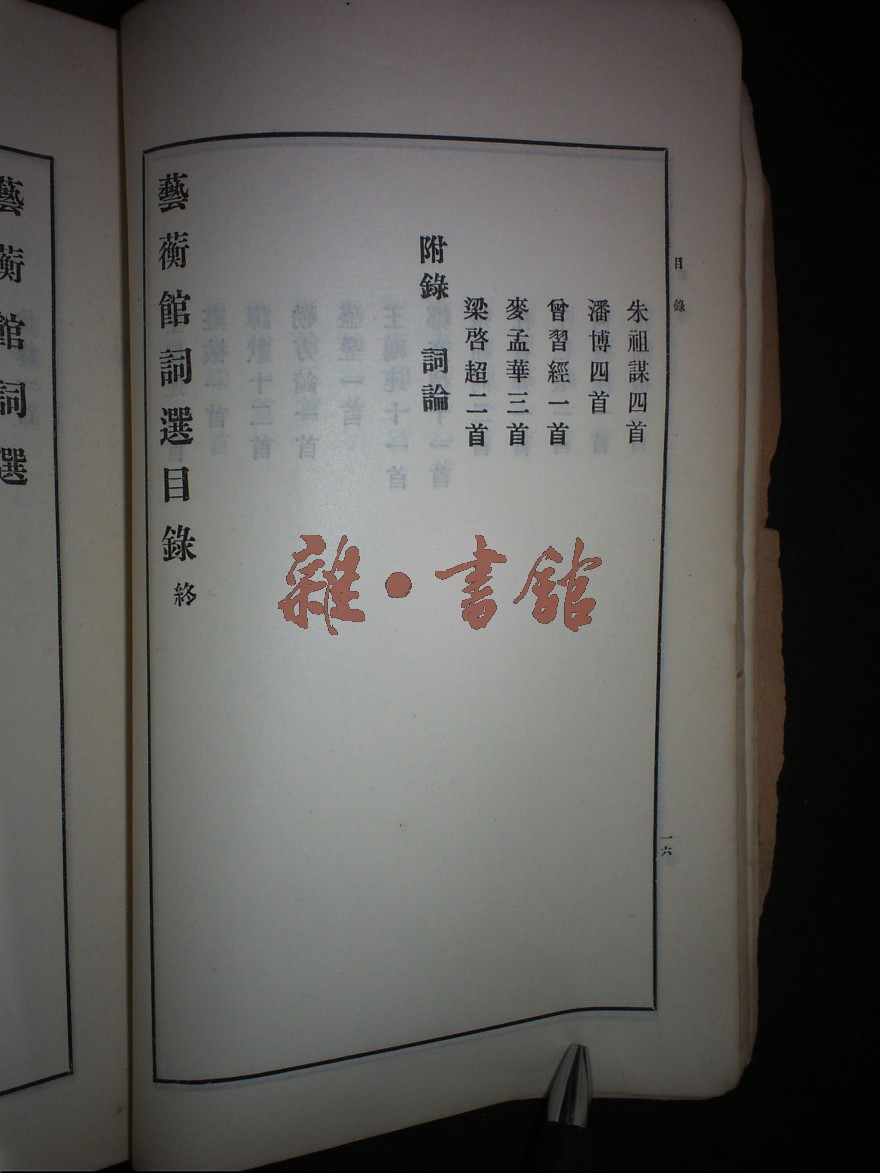 目錄
朱祖謀四首
潘博四首
曾習經一首
麥孟華三首
梁啓超二首
附錄 詞論
藝蘅館詞選目錄 終
一六
藝蘅館詞選
雜・書館